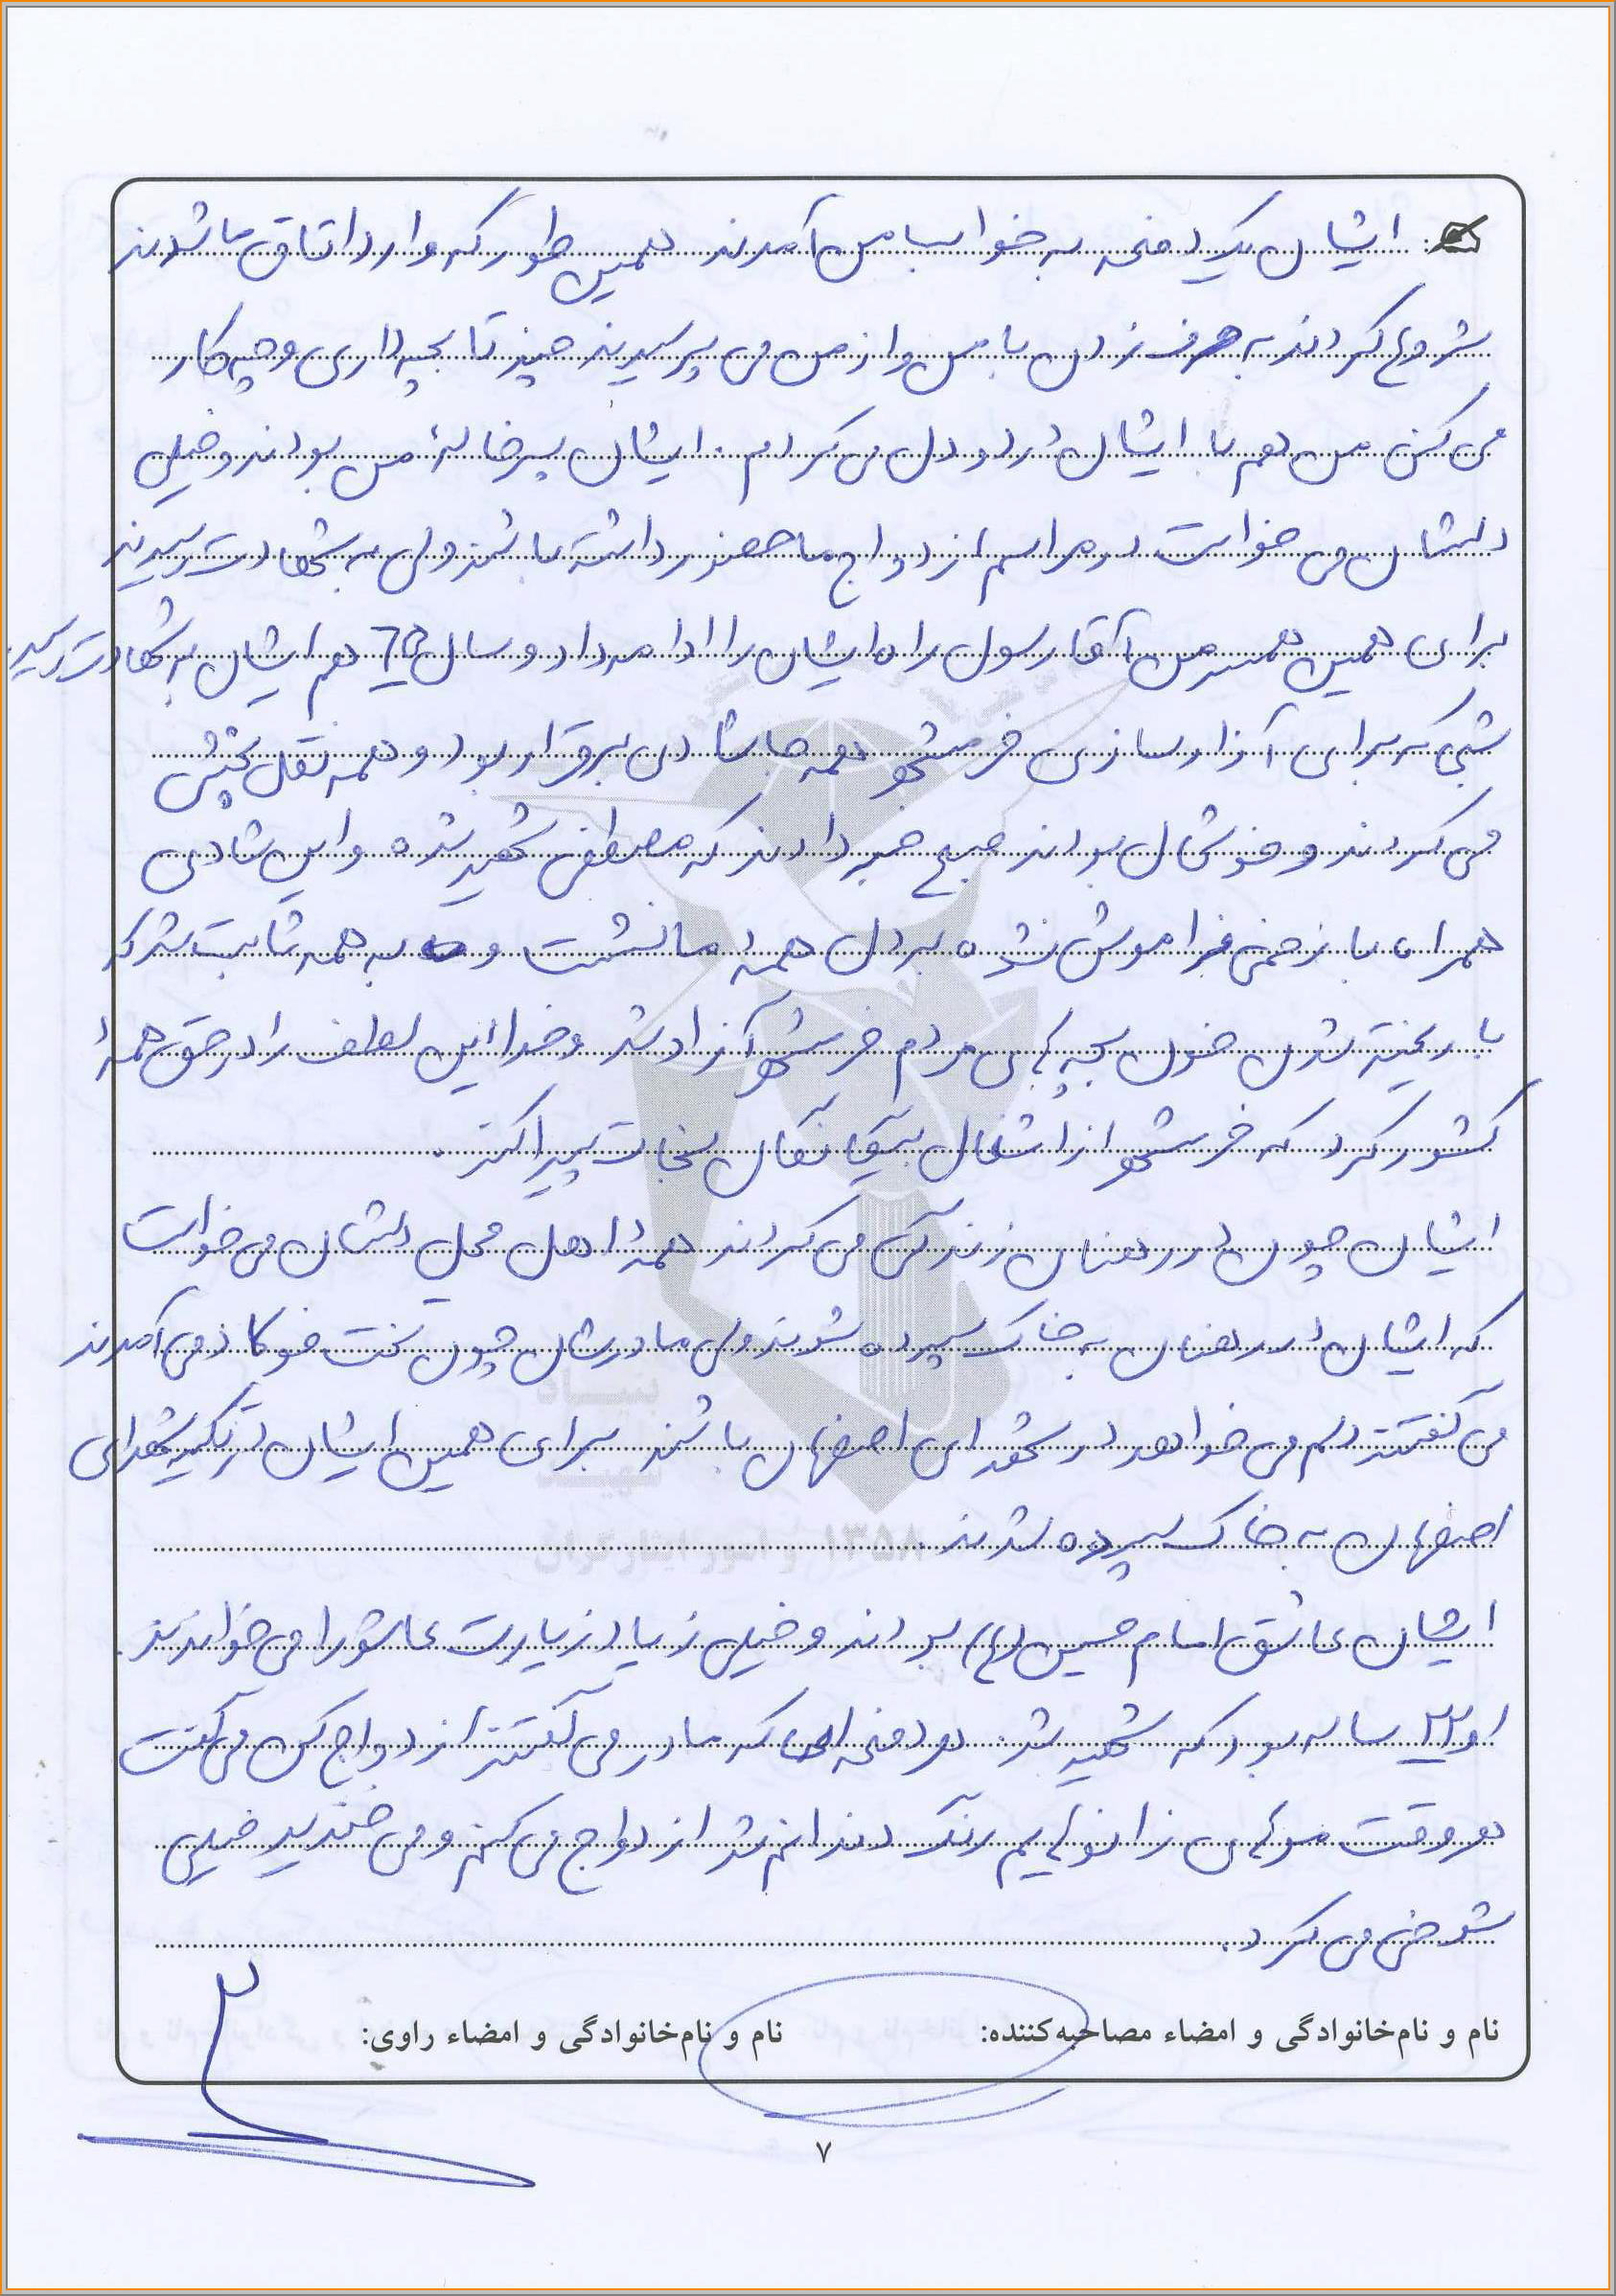 ایشان یک دفعه به خواب من آمدند همین طور که وارد اتاق ما شدند
شروع کردند به حرف زدن با من و از من می پرسیدند چند تا بچه داری و چه کار
می کنی من هم با ایشان درد و دل می کردم. ایشان پسر خالۀ من بودند و خیلی
دلشان می خواست در مراسم ازدواج ما حضور داشته باشند ولی به شهادت رسیدند
برای همین همسر من آقا رسول راه ایشان را ادامه داد و سال هم ایشان به شهادت رسید.
شبی که برای آزادسازی خرمشهر همه جا شادی برقرار بود و همه نقل پخش
می کردند و خوشحال بودند صبح خبر دادند که مصطفی شهید شده و این شادی
همراه با زخمی فراموش نشده بر دل همۀ ما نشست و به همه ثابت شد که
با ریخته شدن خون بچه های مردم خرمشهر آزاد شد و خدا این لطف را در حق همۀ
کشور کرد که خرمشهر از اشغال بیگانگان نجات پیدا کند.
ایشان چون در رهنان زندگی می کردند همۀ اهل محل دلشان می خواست
که ایشان در رهنان به خاک سپرده شوند ولی مادرشان چون تخت فولاد می آمدند
می گفتند دلم می خواهد در شهدای اصفهان باشند برای همین ایشان در تکیه شهدای
اصفهان به خاک سپرده شدند.
ایشان عاشق امام حسین (ع) بودند و خیلی زیاد زیارت عاشورا می خواندند.
او ۲۲ ساله بود که شهید شد. هر دفعه ای که مادر می گفتند ازدواج کن می گفت
هر وقت موهای زانوهایم رنگ دندانم شد ازدواج می کنم و می خندید خیلی
شوخی می کرد.
نام و نام‌خانوادگی و امضاء مصاحبه‌کننده: نام و نام‌خانوادگی و امضاء راوی:
۷
بنیاد
شهید
۱۳۵۸ و امور ایثارگران